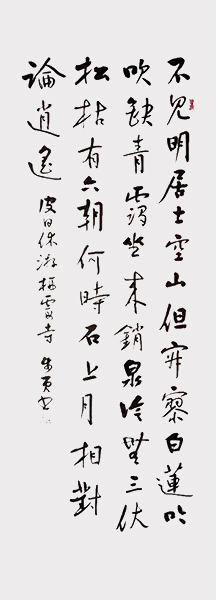 不见明居士空山但寂寥白莲吟
吹缺青霭坐来销泉冷無三伏
松枯有六朝何時石上月相對
論逍遙 皮日休游栖霞寺